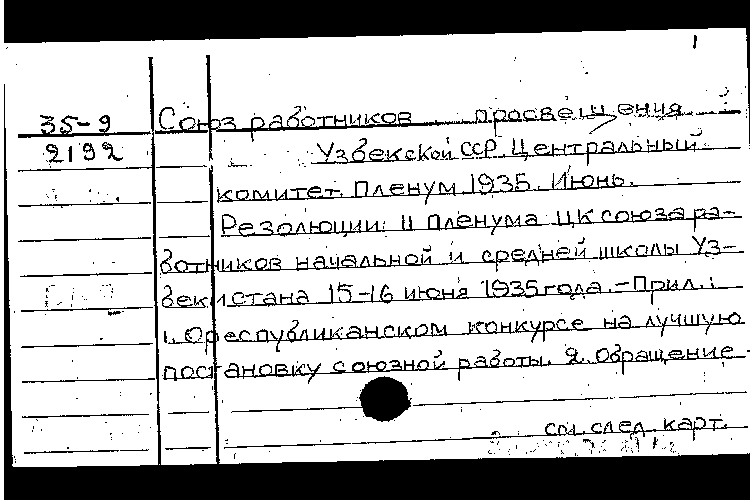 1
35-9 Союз работников просвещения
2192 Узбекской ССР. Центральный
комитет. Пленум 1935. Июнь.
Резолюции II Пленума ЦК союза ра-
ботников начальной и средней школы Уз-
бекистана 15-16 июня 1935 года. - Прил.:
1. О республиканском конкурсе на лучшую
постановку союзной работы. 2. Обращение
см. след. карт.